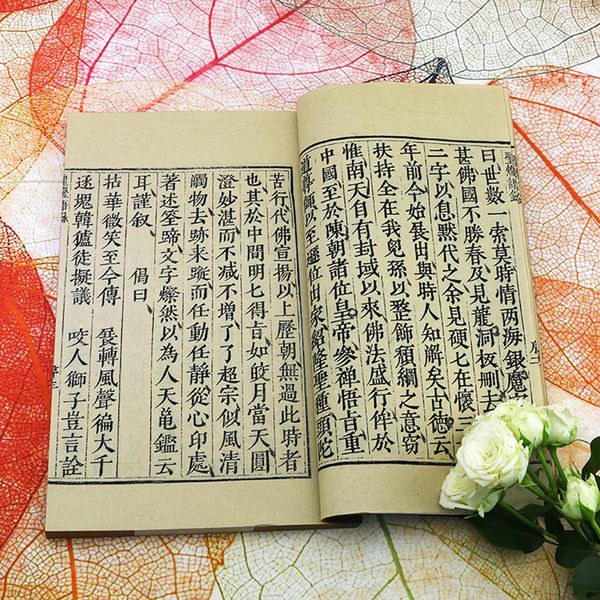 曰世數一索莫時情兩海銀魔
甚佛國不勝春及見龍洞板刪去
二字以息黙代之余見硬乜在懷
年前今始展出與時人知解矣古德云
扶持全在我兒孫以整飾頹綱之意竊
惟南天自有封域以來佛法盛行侔於
中國至於陳朝諸位皇帝參禪悟旨重
道尊師以至遜位出家紹隆聖種頭陀
序二
苦行代佛宣揚以上歷朝無過此時者
也其於中間明乜得旨如皎月當天圓
澄妙湛而不減不增了了超宗似風清
觸物去跡來蹤而任動任靜從心印處
著述筌蹄文字燦然以為人天龜鑑云
耳謹叙 偈曰
拈華微笑至今傳 展轉風聲徧大千
逐塊韓獹徒擬議 咬人獅子豈言詮
序三